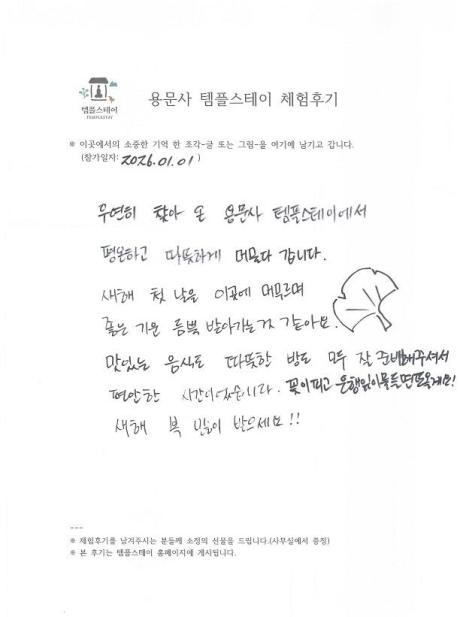 템플스테이
TEMPLESTAY
용문사 템플스테이 체험후기
※ 이곳에서의 소중한 기억 한 조각-글 또는 그림-을 여기에 남기고 갑니다.
(참가일자: 2026.01.01 )
우연히 찾아 온 용문사 템플스테이에서
평온하고 따뜻하게 머물다 갑니다.
새해 첫 날을 이곳에 머무르며
좋은 기운 듬뿍 받아가는거 같아요.
맛있는 음식도 따뜻한 방도 모두 잘 준비해주셔서
편안한 시간이었습니다. 꽃이피고 은행잎이물들면또올게요!
새해 복 많이 받으세요!!
---
※ 체험후기를 남겨주시는 분들께 소정의 선물을 드립니다.(사무실에서 증정)
※ 본 후기는 템플스테이 홈페이지에 게시됩니다.